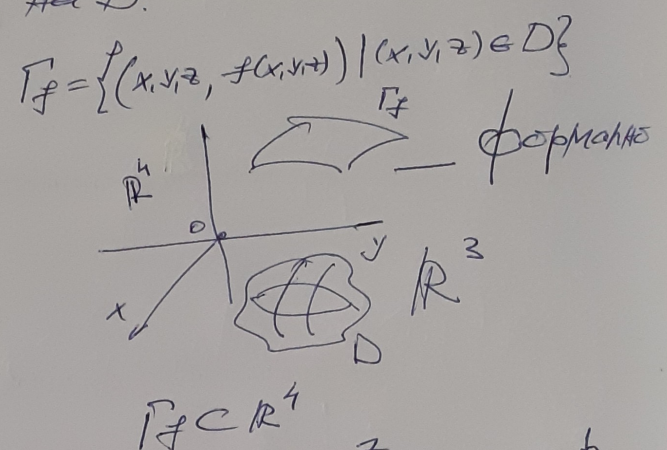 на D.
Γf = {(x, y, z, f(x,y,z)) | (x, y, z) ∈ D}
Γf
— формально
ℝ⁴
0
y
ℝ³
x
D
Γf ⊂ ℝ⁴